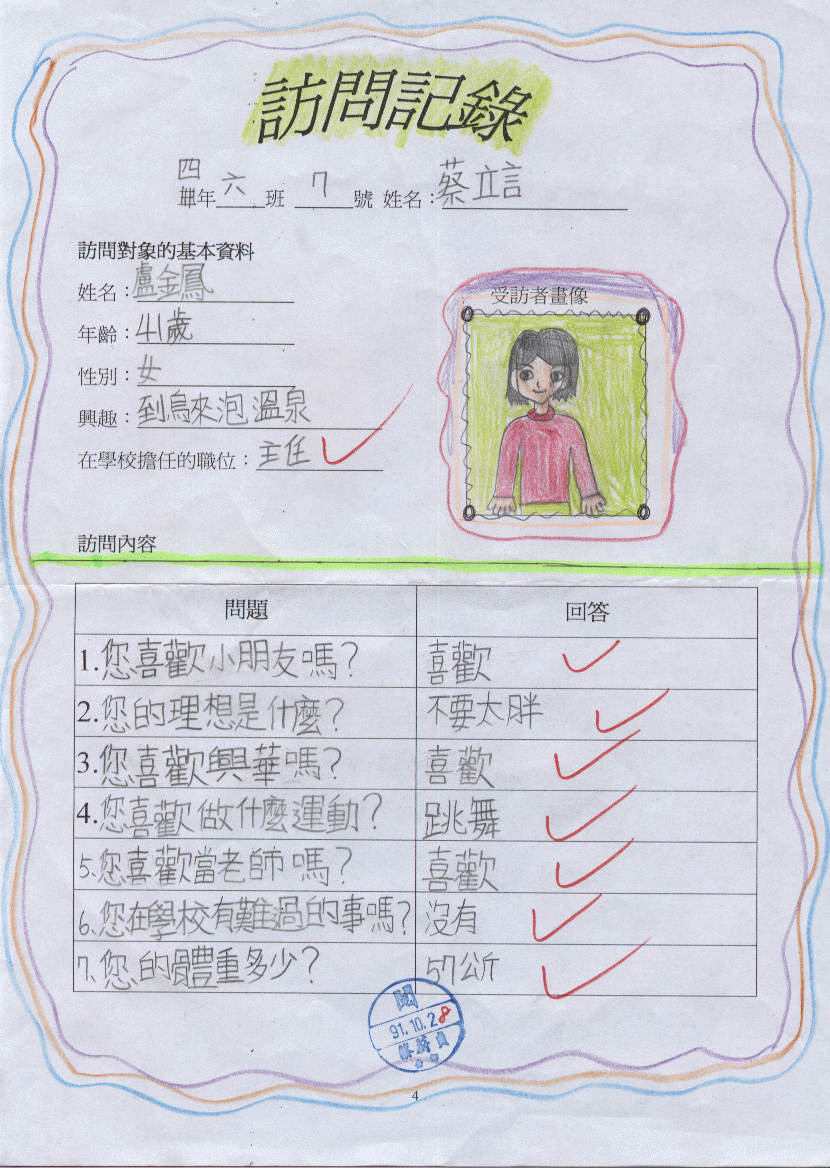 訪問記錄
四年六班 7號 姓名:蔡立言
訪問對象的基本資料
姓名:盧金鳳
年齡:41歲
性別:女
興趣:到烏來泡溫泉
在學校擔任的職位:主任
受訪者畫像
訪問內容
問題 回答
1.您喜歡小朋友嗎? 喜歡
2.您的理想是什麼? 不要太胖
3.您喜歡興華嗎? 喜歡
4.您喜歡做什麼運動? 跳舞
5.您喜歡當老師嗎? 喜歡
6.您在學校有難過的事嗎? 沒有
7.您的體重多少? 57公斤
閱
91.10.28
4